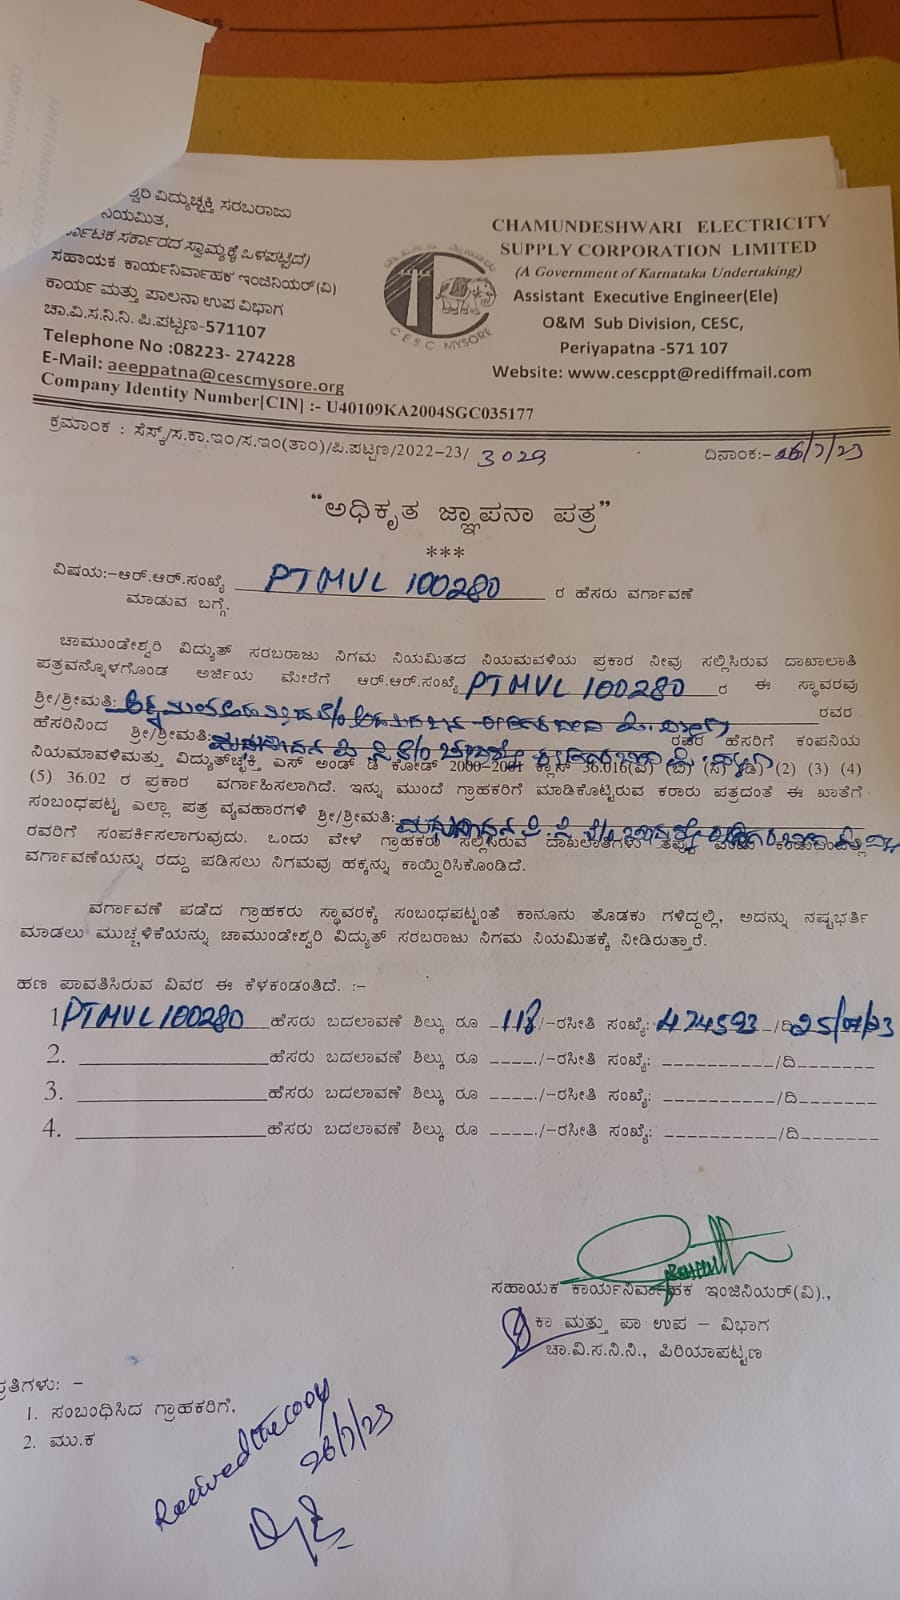 ಶ್ವರಿ ವಿದ್ಯುಚ್ಛಕ್ತಿ ಸರಬರಾಜು
ನಿಯಮಿತ,
ರ್ನಾಟಕ ಸರ್ಕಾರದ ಸ್ವಾಮ್ಯಕ್ಕೆ ಒಳಪಟ್ಟಿದೆ)
ಸಹಾಯಕ ಕಾರ್ಯನಿರ್ವಾಹಕ ಇಂಜಿನಿಯರ್(ವಿ)
ಕಾರ್ಯ ಮತ್ತು ಪಾಲನಾ ಉಪ ವಿಭಾಗ
ಚಾ.ವಿ.ಸ.ನಿ.ನಿ. ಪಿ.ಪಟ್ಟಣ-571107
Telephone No :08223- 274228
E-Mail: aeeppatna@cescmysore.org
Company Identity Number[CIN] :- U40109KA2004SGC035177
C.E.S.C. MYSORE
CHAMUNDESHWARI ELECTRICITY
SUPPLY CORPORATION LIMITED
(A Government of Karnataka Undertaking)
Assistant Executive Engineer(Ele)
O&M Sub Division, CESC,
Periyapatna -571 107
Website: www.cescppt@rediffmail.com
ಕ್ರಮಾಂಕ : ಸೆಸ್ಕ್/ಸ.ಕಾ.ಇಂ/ಸ.ಇಂ(ತಾಂ)/ಪಿ.ಪಟ್ಟಣ/2022-23/ 3029 ದಿನಾಂಕ:- 26/7/23
"ಅಧಿಕೃತ ಜ್ಞಾಪನಾ ಪತ್ರ"
***
ವಿಷಯ:-ಆರ್.ಆರ್.ಸಂಖ್ಯೆ PTMVL 100280 ರ ಹೆಸರು ವರ್ಗಾವಣೆ
ಮಾಡುವ ಬಗ್ಗೆ.
ಚಾಮುಂಡೇಶ್ವರಿ ವಿದ್ಯುತ್ ಸರಬರಾಜು ನಿಗಮ ನಿಯಮಿತದ ನಿಯಮವಳಿಯ ಪ್ರಕಾರ ನೀವು ಸಲ್ಲಿಸಿರುವ ದಾಖಾಲಾತಿ
ಪತ್ರವನ್ನೊಳಗೊಂಡ ಅರ್ಜಿಯ ಮೇರೆಗೆ ಆರ್.ಆರ್.ಸಂಖ್ಯೆ PTMVL 100280 ರ ಈ ಸ್ಥಾವರವು
ಶ್ರೀ/ಶ್ರೀಮತಿ: ರವರ
ಹೆಸರಿನಿಂದ ಶ್ರೀ/ಶ್ರೀಮತಿ: ರವರ ಹೆಸರಿಗೆ ಕಂಪನಿಯ
ನಿಯಮಾವಳಿಮತ್ತು ವಿದ್ಯುತ್‌ಚ್ಛಕ್ತಿ ಎಸ್ ಅಂಡ್ ಡಿ ಕೋಡ್ 2000-2001 ಕ್ಲಾಸ್ 36.016(ಎ) (ಬಿ) (ಸಿ) (ಡಿ) (2) (3) (4)
(5) 36.02 ರ ಪ್ರಕಾರ ವರ್ಗಾಹಿಸಲಾಗಿದೆ. ಇನ್ನು ಮುಂದೆ ಗ್ರಾಹಕರಿಗೆ ಮಾಡಿಕೊಟ್ಟಿರುವ ಕರಾರು ಪತ್ರದಂತೆ ಈ ಖಾತೆಗೆ
ಸಂಬಂಧಪಟ್ಟ ಎಲ್ಲಾ ಪತ್ರ ವ್ಯವಹಾರಗಳಿ ಶ್ರೀ/ಶ್ರೀಮತಿ:
ರವರಿಗೆ ಸಂಪರ್ಕಿಸಲಾಗುವುದು. ಒಂದು ವೇಳೆ ಗ್ರಾಹಕರು ಸಲ್ಲಿಸಿರುವ ದಾಖಲಾತಿಗಳು ತಪ್ಪು ಎಂದು ಕಂಡುಬಂದಲ್ಲಿ
ವರ್ಗಾವಣೆಯನ್ನು ರದ್ದು ಪಡಿಸಲು ನಿಗಮವು ಹಕ್ಕನ್ನು ಕಾಯ್ದಿರಿಸಿಕೊಂಡಿದೆ.
ವರ್ಗಾವಣೆ ಪಡೆದ ಗ್ರಾಹಕರು ಸ್ಥಾವರಕ್ಕೆ ಸಂಬಂಧಪಟ್ಟಂತೆ ಕಾನೂನು ತೊಡಕು ಗಳಿದ್ದಲ್ಲಿ, ಅದನ್ನು ನಷ್ಟಭರ್ತಿ
ಮಾಡಲು ಮುಚ್ಚಳಿಕೆಯನ್ನು ಚಾಮುಂಡೇಶ್ವರಿ ವಿದ್ಯುತ್ ಸರಬರಾಜು ನಿಗಮ ನಿಯಮಿತಕ್ಕೆ ನೀಡಿರುತ್ತಾರೆ.
ಹಣ ಪಾವತಿಸಿರುವ ವಿವರ ಈ ಕೆಳಕಂಡಂತಿದೆ. :-
1 PTMVL100280 ಹೆಸರು ಬದಲಾವಣೆ ಶಿಲ್ಕು ರೂ 118/-ರಸೀತಿ ಸಂಖ್ಯೆ: 474593 /ದಿ 25/07/23
2. ____________ಹೆಸರು ಬದಲಾವಣೆ ಶಿಲ್ಕು ರೂ ____./-ರಸೀತಿ ಸಂಖ್ಯೆ: __________/ದಿ_______
3. ____________ಹೆಸರು ಬದಲಾವಣೆ ಶಿಲ್ಕು ರೂ ____./-ರಸೀತಿ ಸಂಖ್ಯೆ: __________/ದಿ_______
4. ____________ಹೆಸರು ಬದಲಾವಣೆ ಶಿಲ್ಕು ರೂ ____./-ರಸೀತಿ ಸಂಖ್ಯೆ: __________/ದಿ_______
ಸಹಾಯಕ ಕಾರ್ಯನಿರ್ವಾಹಕ ಇಂಜಿನಿಯರ್(ವಿ).,
ಕಾ ಮತ್ತು ಪಾ ಉಪ - ವಿಭಾಗ
ಚಾ.ವಿ.ಸ.ನಿ.ನಿ., ಪಿರಿಯಾಪಟ್ಟಣ
ಪ್ರತಿಗಳು: -
1. ಸಂಬಂಧಿಸಿದ ಗ್ರಾಹಕರಿಗೆ.
2. ಮು.ಕ
Received the copy
26/7/23